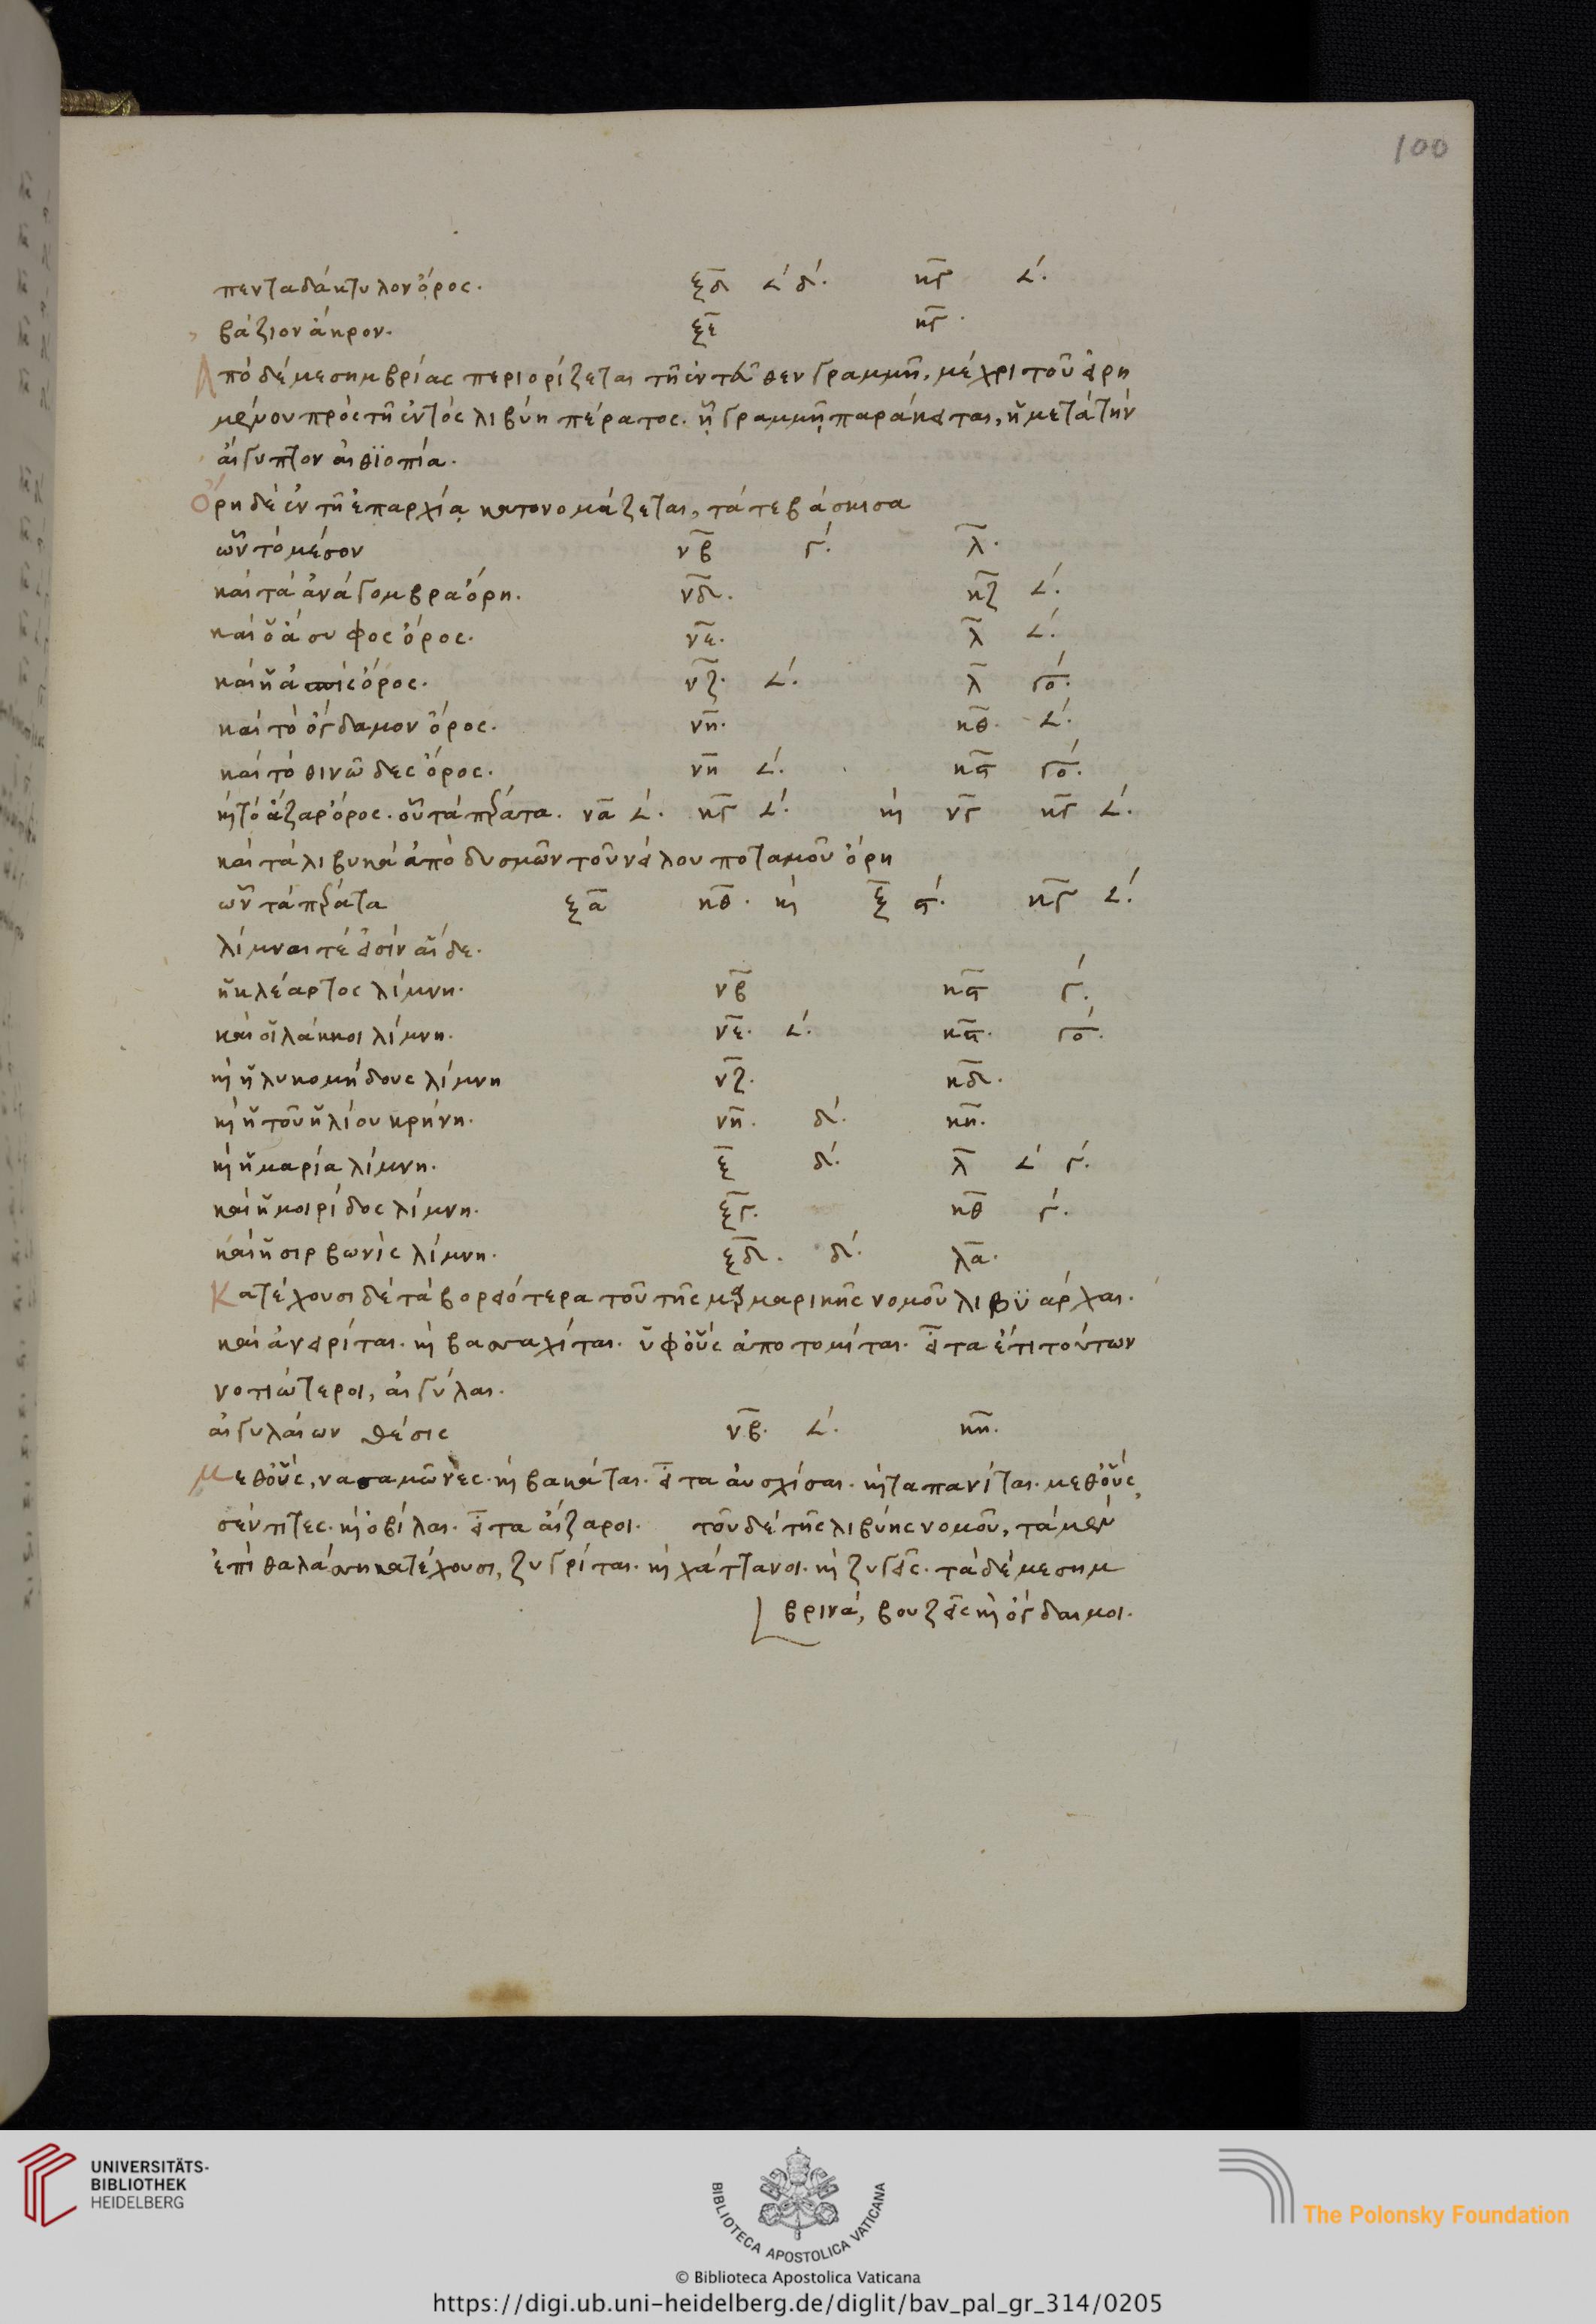 100
πενταδάκτυλον ὄρος. ξδ 𐅵 δ΄. κγ 𐅵.
βάζιον ἄκρον. ξε κγ.
Ἀπὸ δὲ μεσημβρίας περιορίζεται τῆ ἐντεῦθεν γραμμῆ, μέχρι τοῦ εἰρη
μένου πρὸς τῆ ἐντὸς λιβύη πέρατος. ἧ γραμμῆ παράκειται, ἡ μετὰ τὴν
αἴγυπτον αἰθϊοπία.
Ὄρη δὲ ἐν τῆ ἐπαρχία κατονομάζεται, τά τε βάσκισα
ὧν τὸ μέσον νβ γ΄. λ.
καὶ τὰ ἀνάγομβρα ὄρη. νδ. κζ 𐅵.
καὶ ὁ ἄσυφος ὄρος. νε. λ 𐅵.
ὄρος. νζ. 𐅵. λ γο΄.
καὶ τὸ ὄγδαμον ὄρος. νη. κθ. 𐅵.
καὶ τὸ θινῶδες ὄρος. νη 𐅵. κϛ γο΄.
κὶ τὸ ἄζαρ ὄρος. οὗ τὰ πέρατα. να 𐅵. κγ 𐅵. κὶ νγ κγ 𐅵.
καὶ τὰ λιβυκὰ ἀπὸ δυσμῶν τοῦ νείλου ποταμοῦ ὄρη
ὧν τὰ πέρατα ξα κθ. κὶ ξ ϛ΄. κγ 𐅵.
λίμναι τέ εἰσίν αἵδε.
ἡ κλέαρτος λίμνη. νβ κϛ γ΄.
καὶ οἱ λάκκοι λίμνη. νε. 𐅵. κϛ. γο΄.
κὶ ἡ λυκομήδους λίμνη νζ. κδ.
κὶ ἡ τοῦ ἡλίου κρήνη. νη. δ΄. κη.
κὶ ἡ μαρία λίμνη. ξ δ΄. λ 𐅵 γ΄.
καὶ ἡ μοιρίδος λίμνη. ξγ. κθ γ΄.
καὶ ἡ σιρβωνὶς λίμνη. ξδ. δ΄. λα.
Κατέχουσι δὲ τὰ βορειότερα τοῦ τῆς μαρμαρικῆς νομοῦ λιβϋάρχαι.
καὶ ἀνειρίται. κὶ βασσαχίται. ὑφ᾽ οὓς ἀποτομίται. εἶτα ἔτι τούτων
νοτιώτεροι, αἰγύλαι.
αἰγυλαίων θέσις νβ. 𐅵. κη.
Μεθ᾽ οὓς, νασαμῶνες. κὶ βακάται. εἶτα αὐσχίσαι. κὶ ταπανίται. μεθ᾽ οὓς,
σέντιτες. κὶ ὀβίλαι. εἶτα αἴζαροι. τοῦ δὲ τῆς λιβύης νομοῦ, τὰ μὲν
ἐπὶ θαλάσση κατέχουσι, ζυγρίται. κὶ χάτταναι. κὶ ζυγεῖς. τὰ δὲ μεσημ
βρινά, βουζεῖς κὶ ὄγδαιμοι.
UNIVERSITÄTS-
BIBLIOTHEK
HEIDELBERG
BIBLIOTECA APOSTOLICA VATICANA
The Polonsky Foundation
© Biblioteca Apostolica Vaticana
https://digi.ub.uni-heidelberg.de/diglit/bav_pal_gr_314/0205